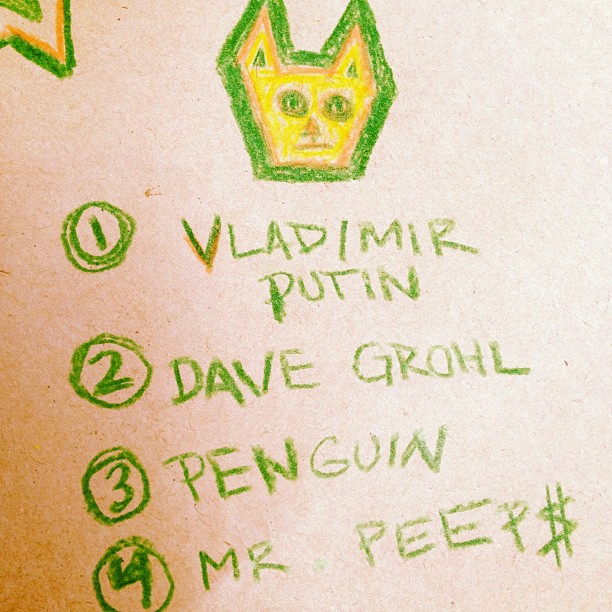 1 VLADIMIR
PUTIN
2 DAVE GROHL
3 PENGUIN
4 MR. PEEP$